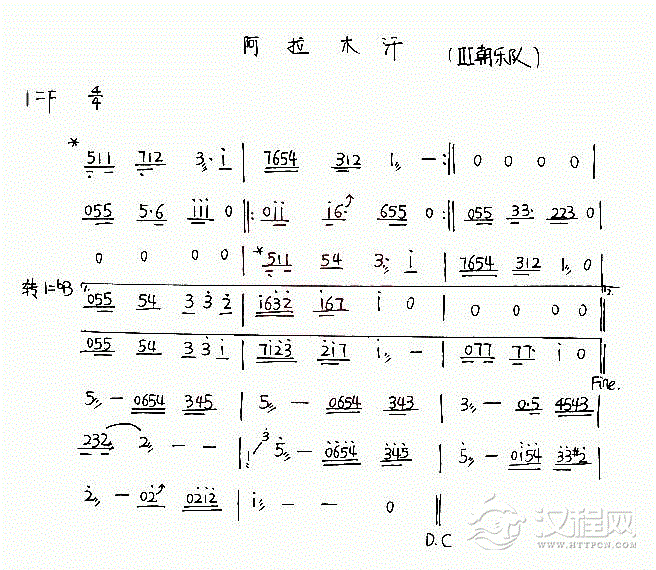 阿拉木汗
1=F 4/4
*511 712 3·i | 7654 312 1 — :‖ 0 0 0 0 |
055 5·6 iii 0 ‖: 0ii i6· 655 0 :‖ 055 33· 223 0
0 0 0 0 | *511 54 3· i | 7654 312 1 0
转1=♭B 055 54 3 3 2 | i632 i67 i 0 | 0 0 0 0 ‖
055 54 3 3 i | 7i23 2i7 i — | 077 77· i 0 ‖
Fine.
5 — 0654 345 | 5 — 0654 343 | 3 — 0·5 4543 |
232 2 — — | 1 3 5 — 0654 345 | 5 — 0154 33#2
2 — 02 0212 | i — — 0 ‖
D.C
汉程网
WWW.HTTPCN.COM